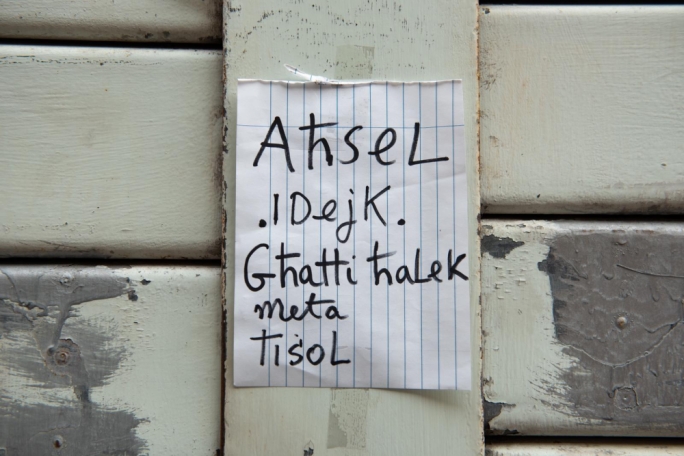 Aħsel
.IDejK.
Għatti ħalek
meta
Tisgħol